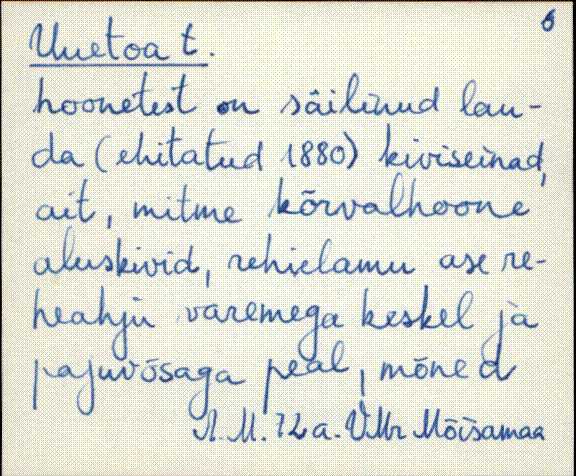 6
Uuetoa t.
hoonetest on säilinud lau-
da (ehitatud 1880) kiviseinad,
ait, mitme kõrvalhoone
aluskivid, rehielamu ase re-
heahju varemega keskel ja
pajuvõsaga peal, mõned
A. M. 72 a. VMr Mõisamaa